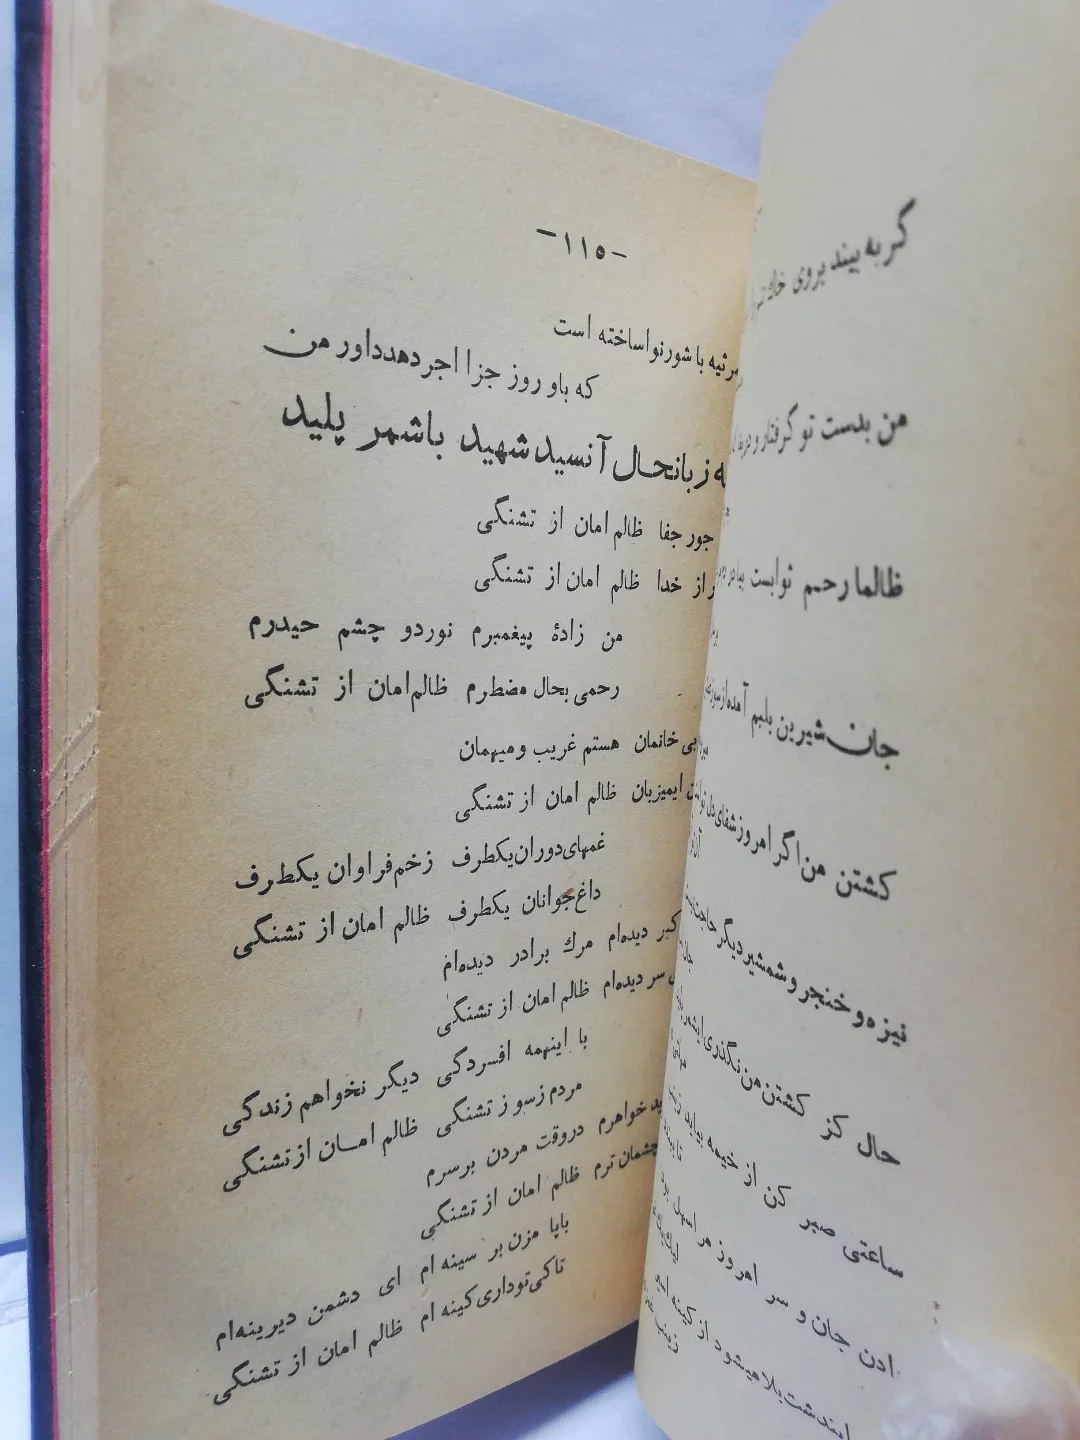 -۱۱۵-
مرثیه با شور نوا ساخته است
که باو روز جزا اجر دهد داور من
زبانحال آنسید شهید باشمر پلید
جور جفا ظالم امان از تشنگی
از خدا ظالم امان از تشنگی
من زادهٔ پیغمبرم نور دو چشم حیدرم
رحمی بحال مضطرم ظالم امان از تشنگی
بی خانمان هستم غریب و میهمان
ایمیزبان ظالم امان از تشنگی
غمهای دوران یکطرف زخم فراوان یکطرف
داغ جوانان یکطرف ظالم امان از تشنگی
دیده‌ام مرك برادر دیده‌ام
سر دیده‌ام ظالم امان از تشنگی
با اینهمه افسردگی دیگر نخواهم زندگی
مردم ز سوز تشنگی ظالم امان از تشنگی
خواهرم در وقت مردن بر سرم
چشمان ترم ظالم امان از تشنگی
بایا مزن بر سینه ام ای دشمن دیرینه‌ام
تا کی تو داری کینه ام ظالم امان از تشنگی
گر به بیند بروی خاك
من بدست تو گرفتار و
ظالما رحم
جان شیرین بلبم آمده از سوز
کشتن من اگر امروز شفای دل
نیزه و خنجر و شمشیر دیگر حاجت
حال کز کشتن من نگذری ایشمر
ساعتی صبر کن از خیمه بیاید
دادن جان و سر امروز مرا سهل بود
میشود از کینه